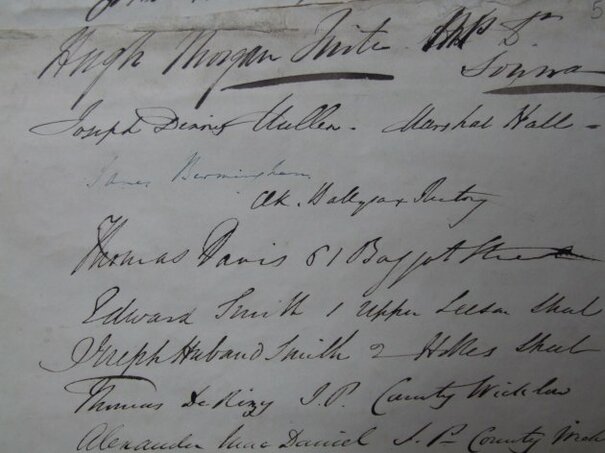 Hugh Morgan Tuite M P for
Sonna
Joseph Dennis Mullen - Marshal Hall -
James Bermingham
Thomas Davis 61 Baggot Street
Edward Smith 1 Upper Leeson Street
Joseph Huband Smith 2 Holles Street
Thomas De Rinzy J.P. County Wicklow
Alexander Mac Daniel J.P County